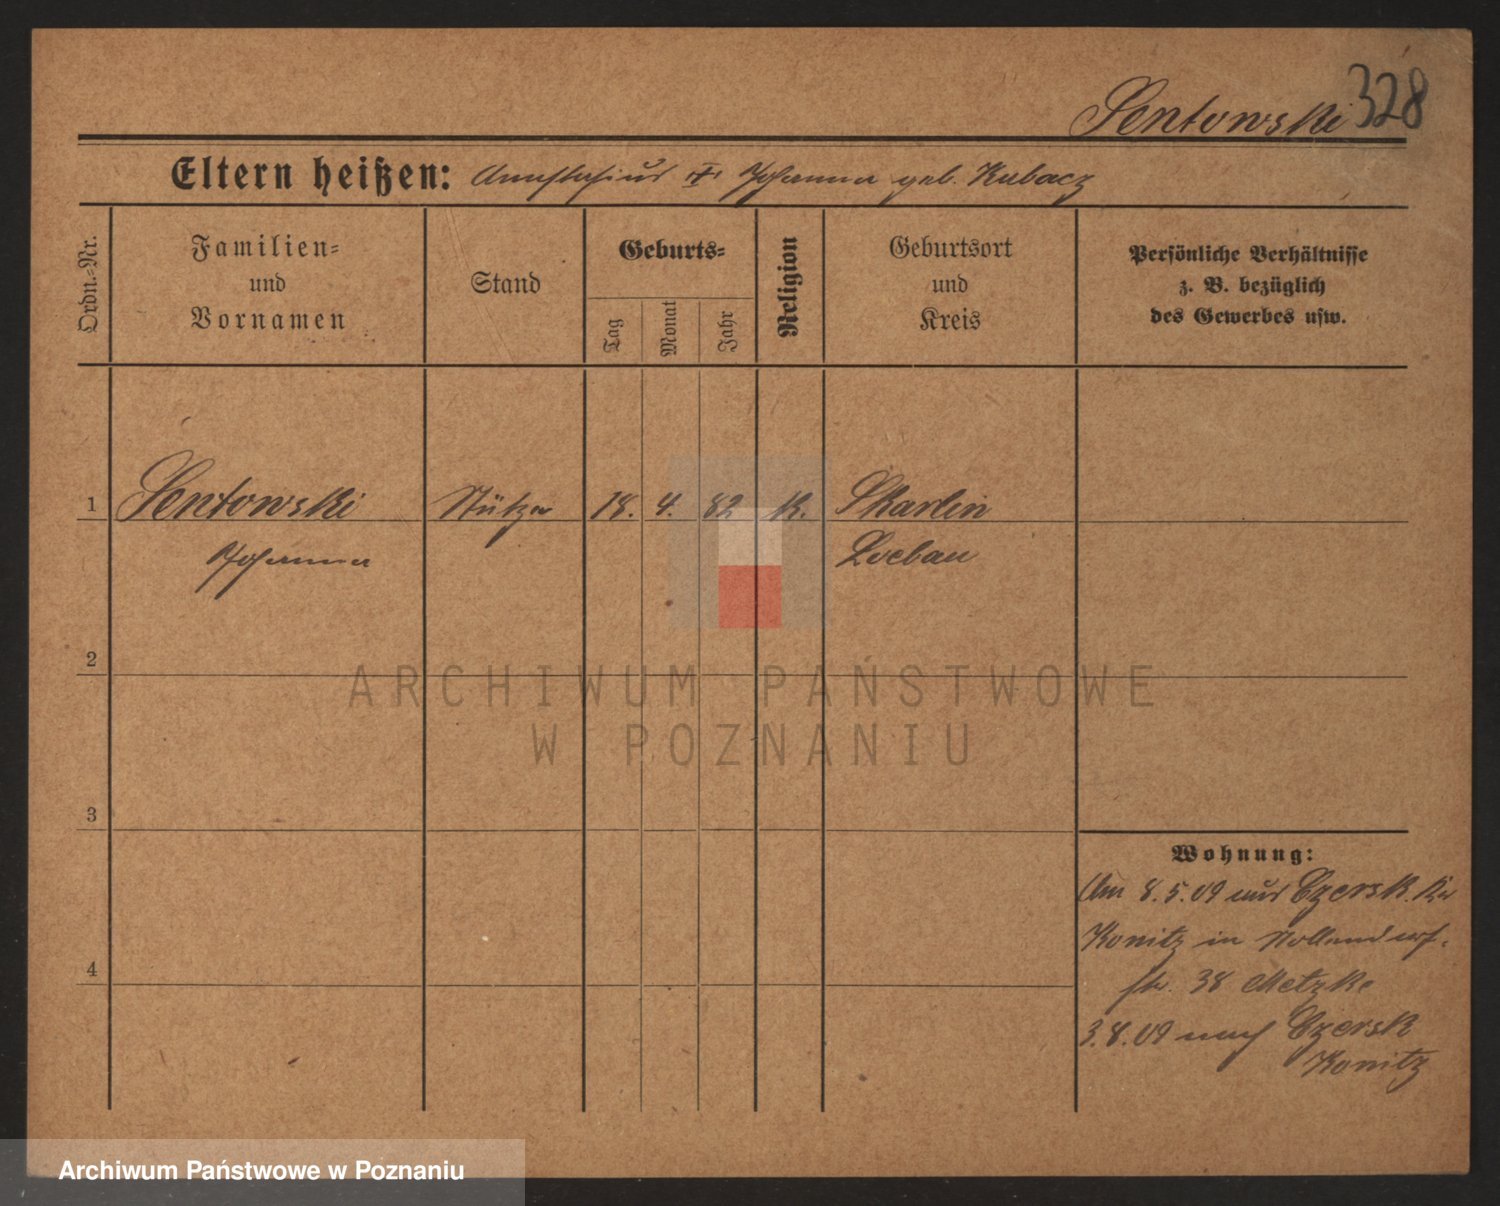 328
Sentowski
Eltern heißen: Anastasius u. Johanna geb. Kubacz
Ordn.-Nr.
Familien-
und
Vornamen
Stand
Geburts-
Tag
Monat
Jahr
Religion
Geburtsort
und
Kreis
Persönliche Verhältnisse
z. B. bezüglich
des Gewerbes usw.
1 Sentowski Stütze 18. 4. 82 K. Skarlin
Johanna Loebau
2
ARCHIWUM PAŃSTWOWE
W POZNANIU
3
Wohnung:
Am 8.5.09 aus Czersk Kr
4
Konitz in
str. 38 Metzke
3.8.09 nach Czersk
Konitz
Archiwum Państwowe w Poznaniu